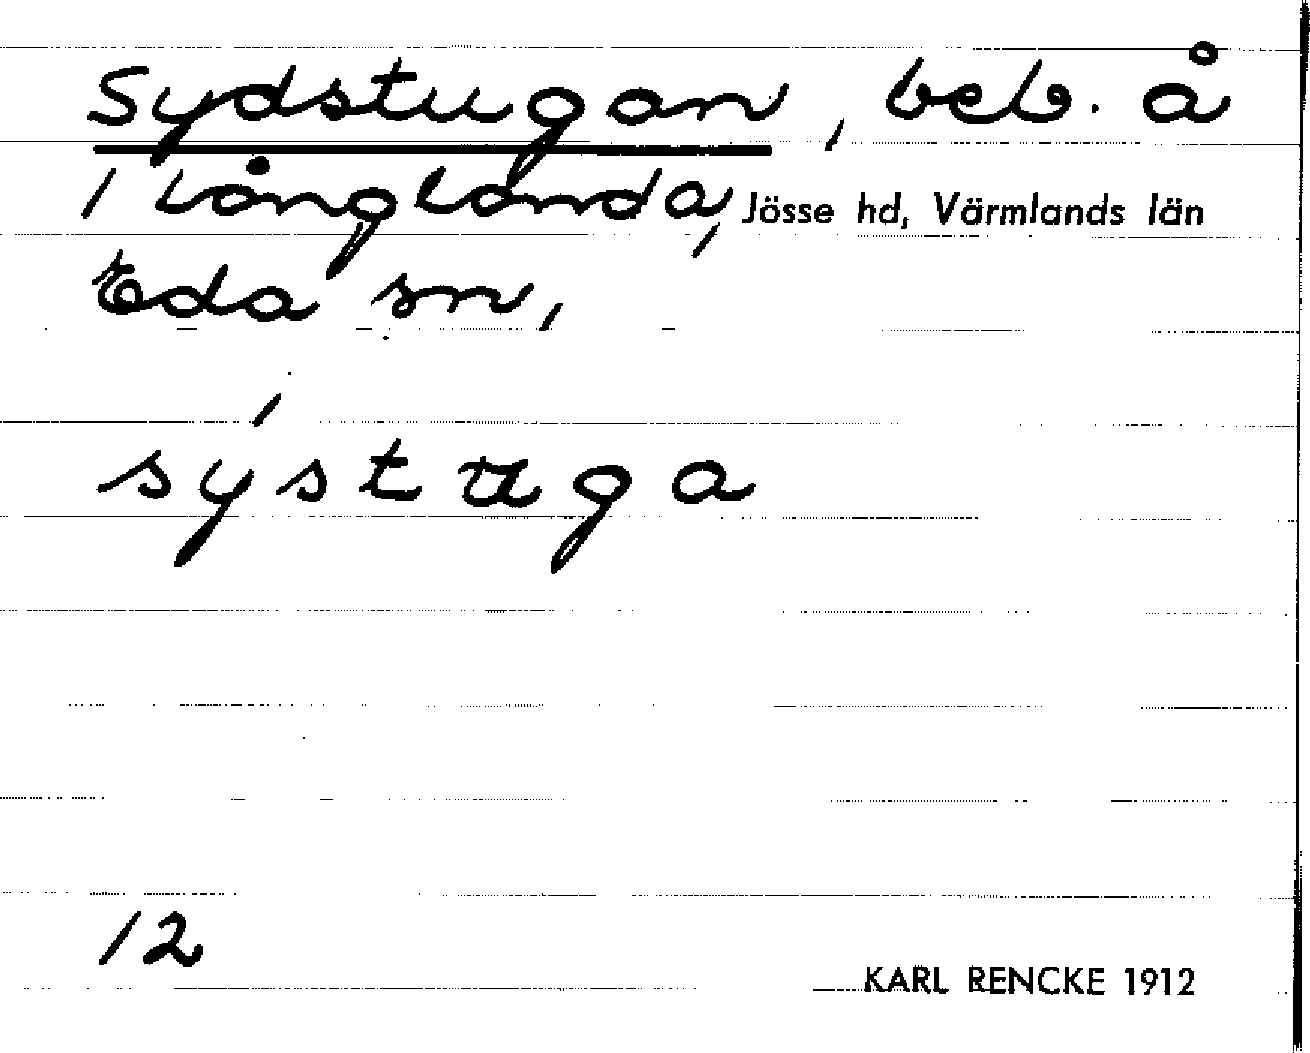 Sydstugan, beb. å
1 Långlanda, Jösse hd, Värmlands län
Eda sn,
sýstuga
12
KARL RENCKE 1912